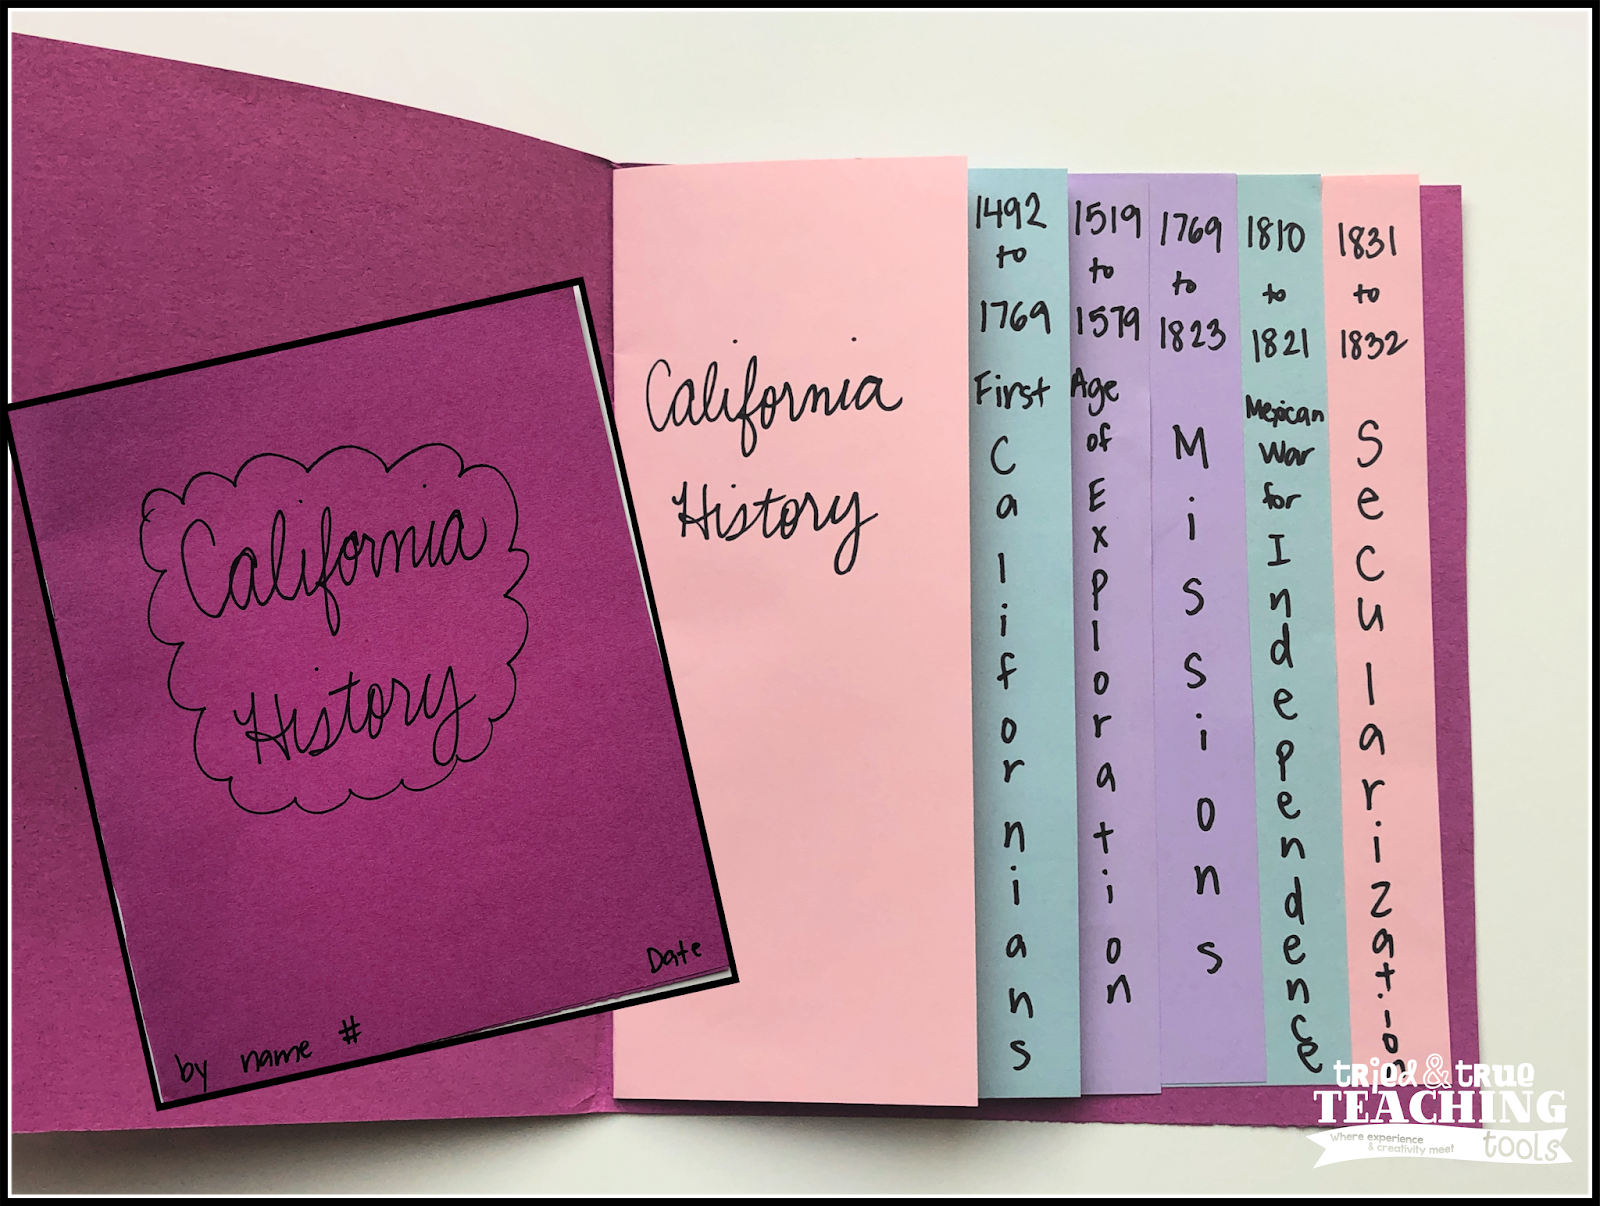 California
History
by name #
Date
California
History
1492
to
1769
First
Californians
1519
to
1579
Age
of
Exploration
1769
to
1823
Missions
1810
to
1821
Mexican
War
for
Independence
1831
to
1832
Secularization
tried & true
TEACHING
tools
where experience
& creativity meet